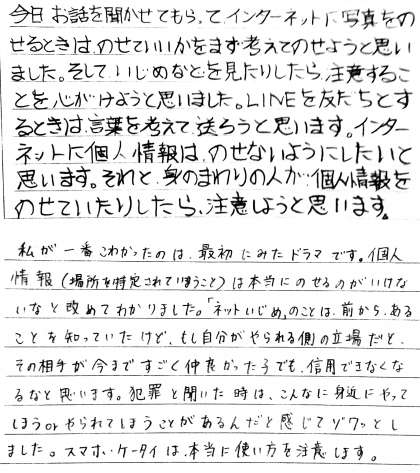 今日お話を聞かせてもらって、インターネットに写真をの
せるときは、のせていいかをまず考えてのせようと思い
ました。そして、いじめなどを見たりしたら、注意するこ
とを心がけようと思いました。LINEを友だちとす
るときは、言葉を考えて送ろうと思います。インター
ネットに個人情報は、のせないようにしたいと
思います。それと、身のまわりの人が、個人情報を
のせていたりしたら、注意しようと思います。
私が一番こわかったのは、最初にみたドラマです。個人
情報(場所を特定されてしまうこと)は本当にのせるのがいけな
いなと改めてわかりました。「ネットいじめ」のことは、前から、ある
ことを知っていたけど、もし自分がやられる側の立場だと、
その相手が今まですごく仲良かった子でも、信用できなくな
るなと思います。犯罪と聞いた時は、こんなに身近にやって
しまうorやられてしまうことがあるんだと感じてゾワッとし
ました。スマホ・ケータイは、本当に使い方を注意します。